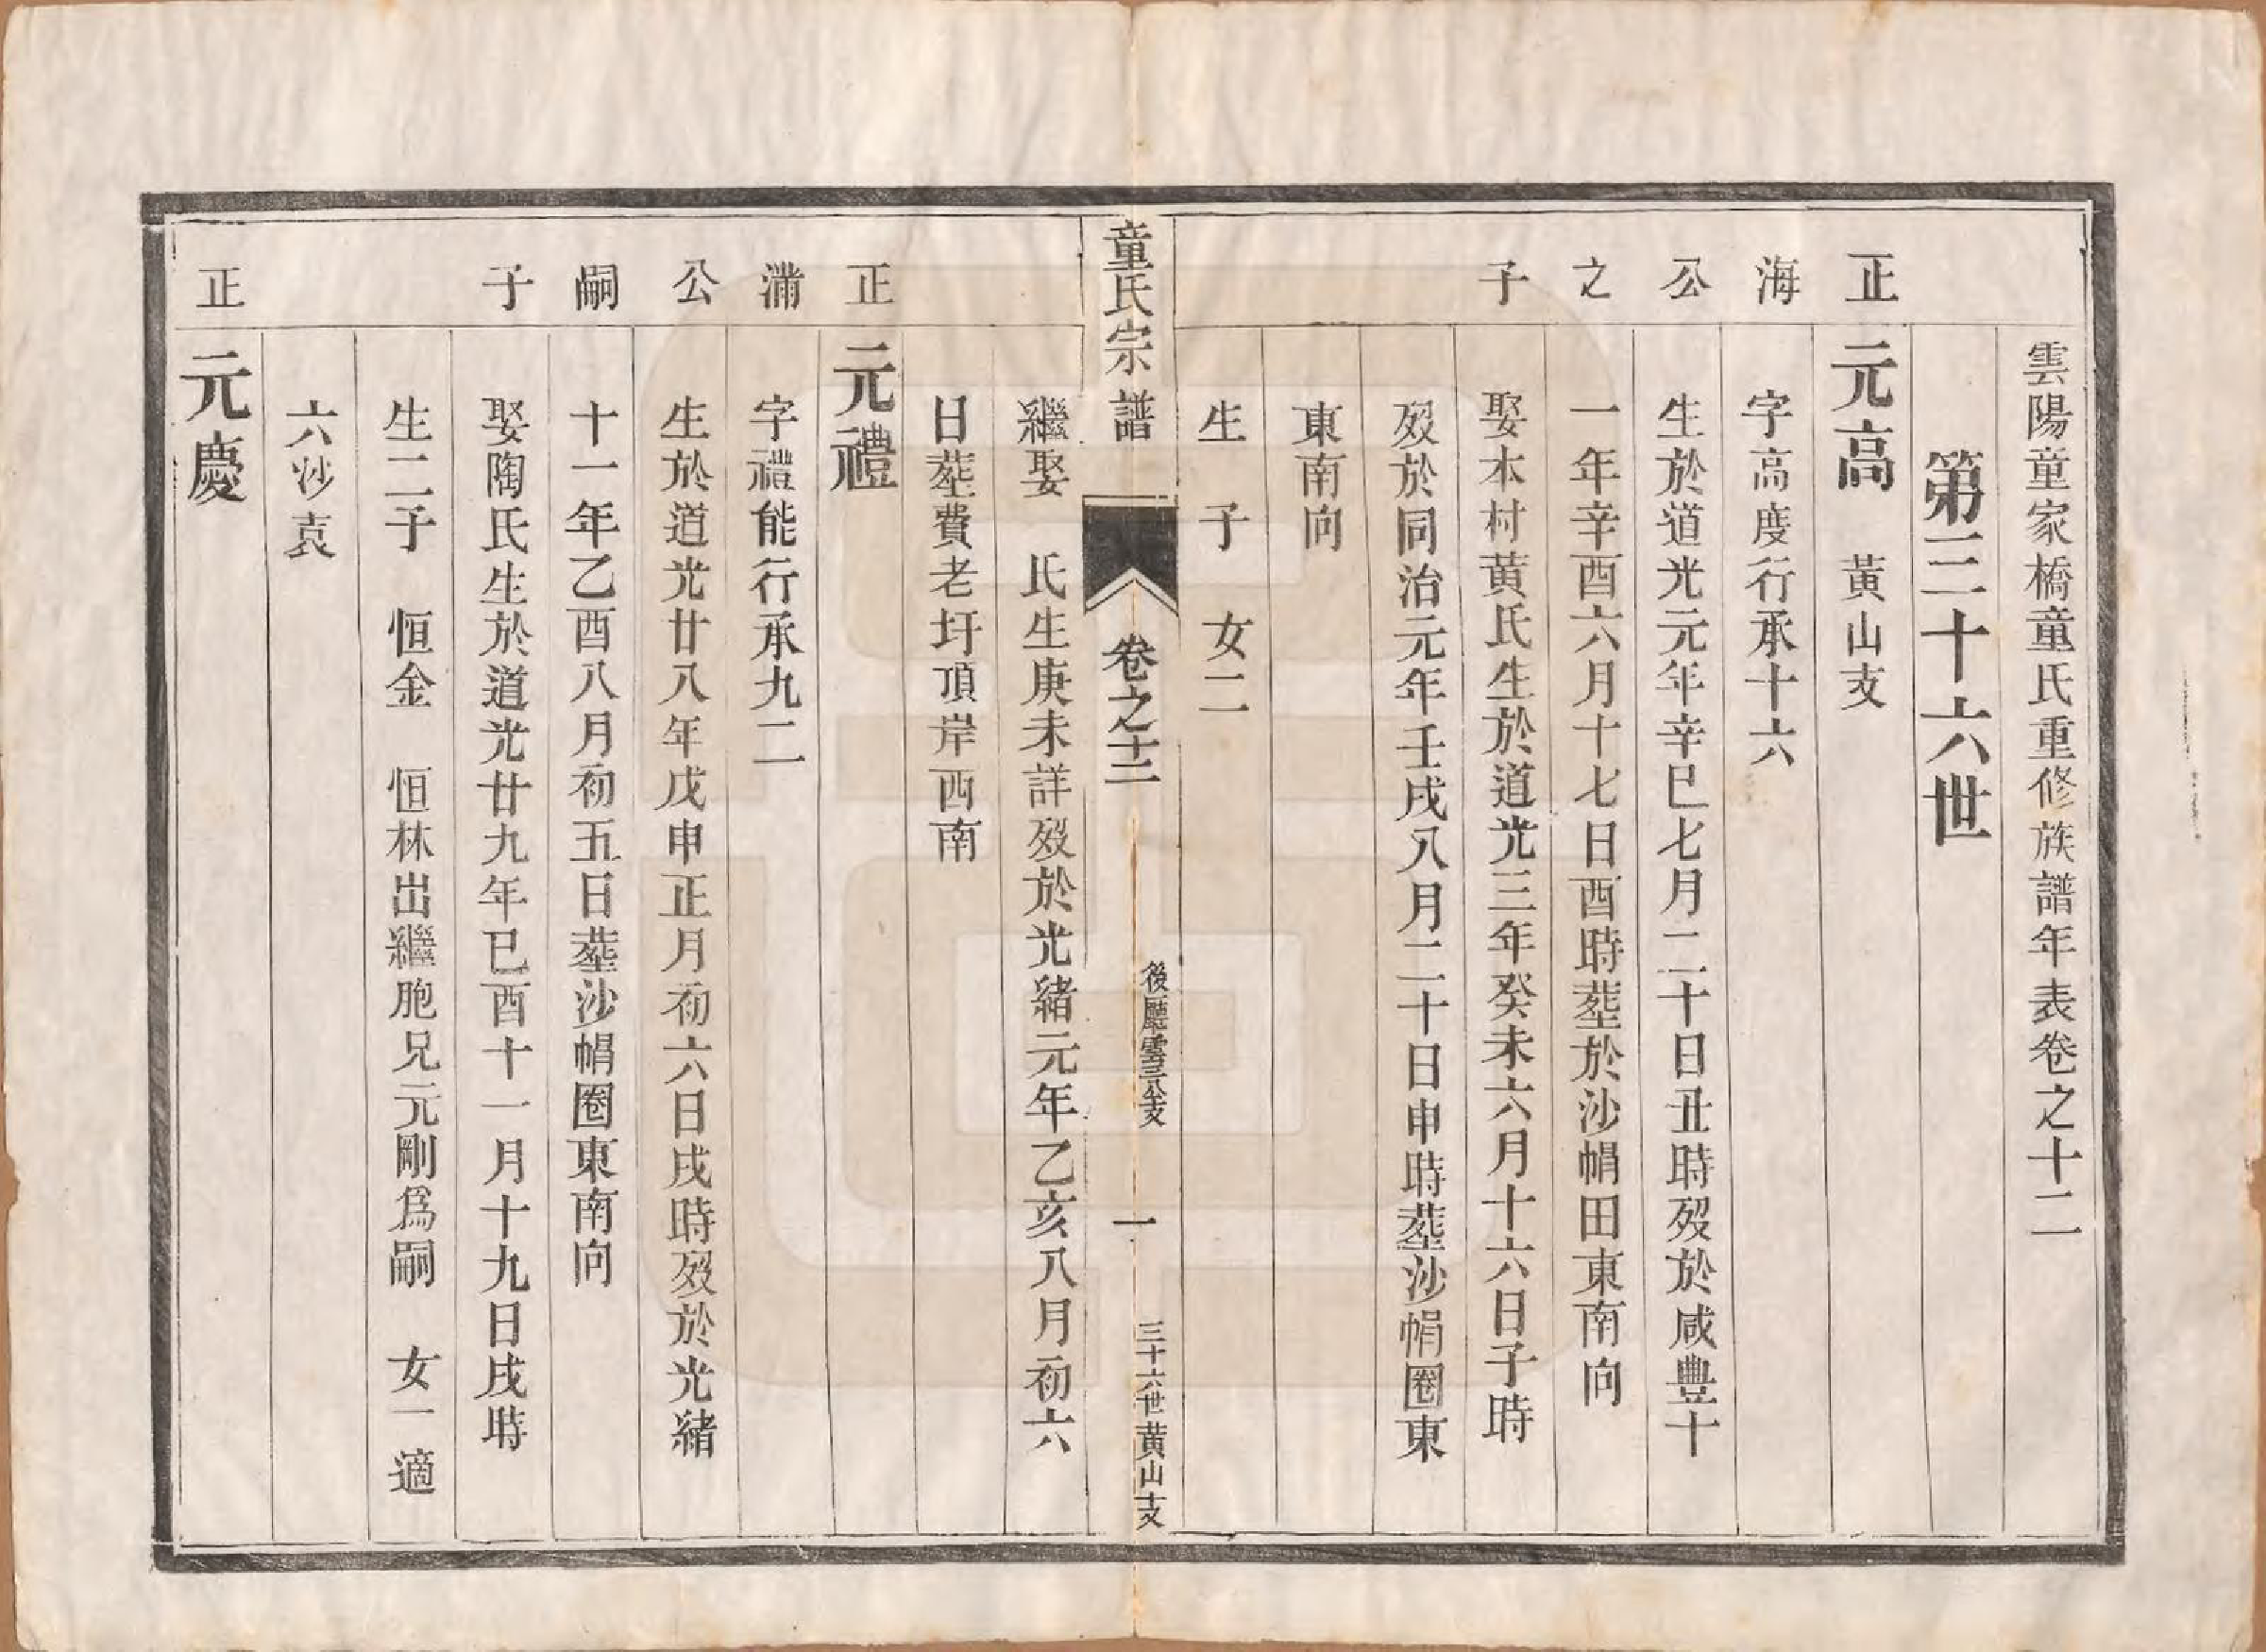 雲陽童家橋童氏重修族譜年表卷之十二
第三十六世
正海公之子
元高　黃山支
字高度行承十六
生於道光元年辛巳七月二十日丑時歿於咸豐十
一年辛酉六月十七日酉時塟於沙帽田東南向
娶本村黃氏生於道光三年癸未六月十六日子時
歿於同治元年壬戌八月二十日申時塟沙帽圈東
東南向
生　子　女二
童氏宗譜
卷之十二
後廳雲三公支
一
三十六世黃山支
繼娶　氏生庚未詳歿於光緒元年乙亥八月初六
日塟費老圩頂岸西南
正滿公嗣子
元禮
字禮能行承九二
生於道光廿八年戊申正月初六日戌時歿於光緒
十一年乙酉八月初五日塟沙帽圈東南向
娶陶氏生於道光廿九年已酉十一月十九日戌時
生二子　恒金　恒林出繼胞兄元剛爲嗣　女一適
六沙袁
正
元慶